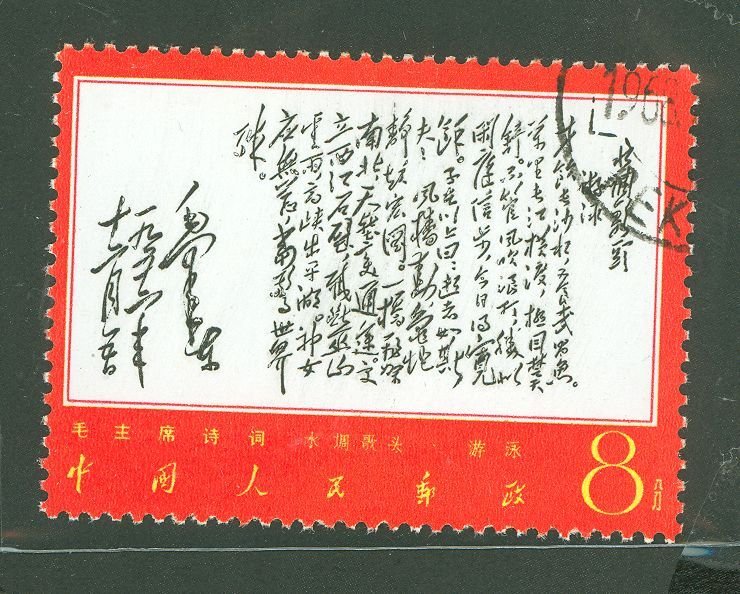 水調歌头
游泳
才飲长沙水，又食武昌魚。
萬里长江横渡，極目楚天
舒。不管風吹浪打，勝似
闲庭信步，今日得寬
餘。子在川上曰：逝者如斯
夫！風樯動，龜蛇
静，起宏圖。一橋飛架
南北，天塹变通途。更
立西江石壁，截断巫山
雲雨，高峡出平湖。神女
应無恙，當驚世界
殊。
毛泽东
一九五六年
十二月五日
毛主席诗词 水调歌头 游泳
中国人民邮政
8分
1968